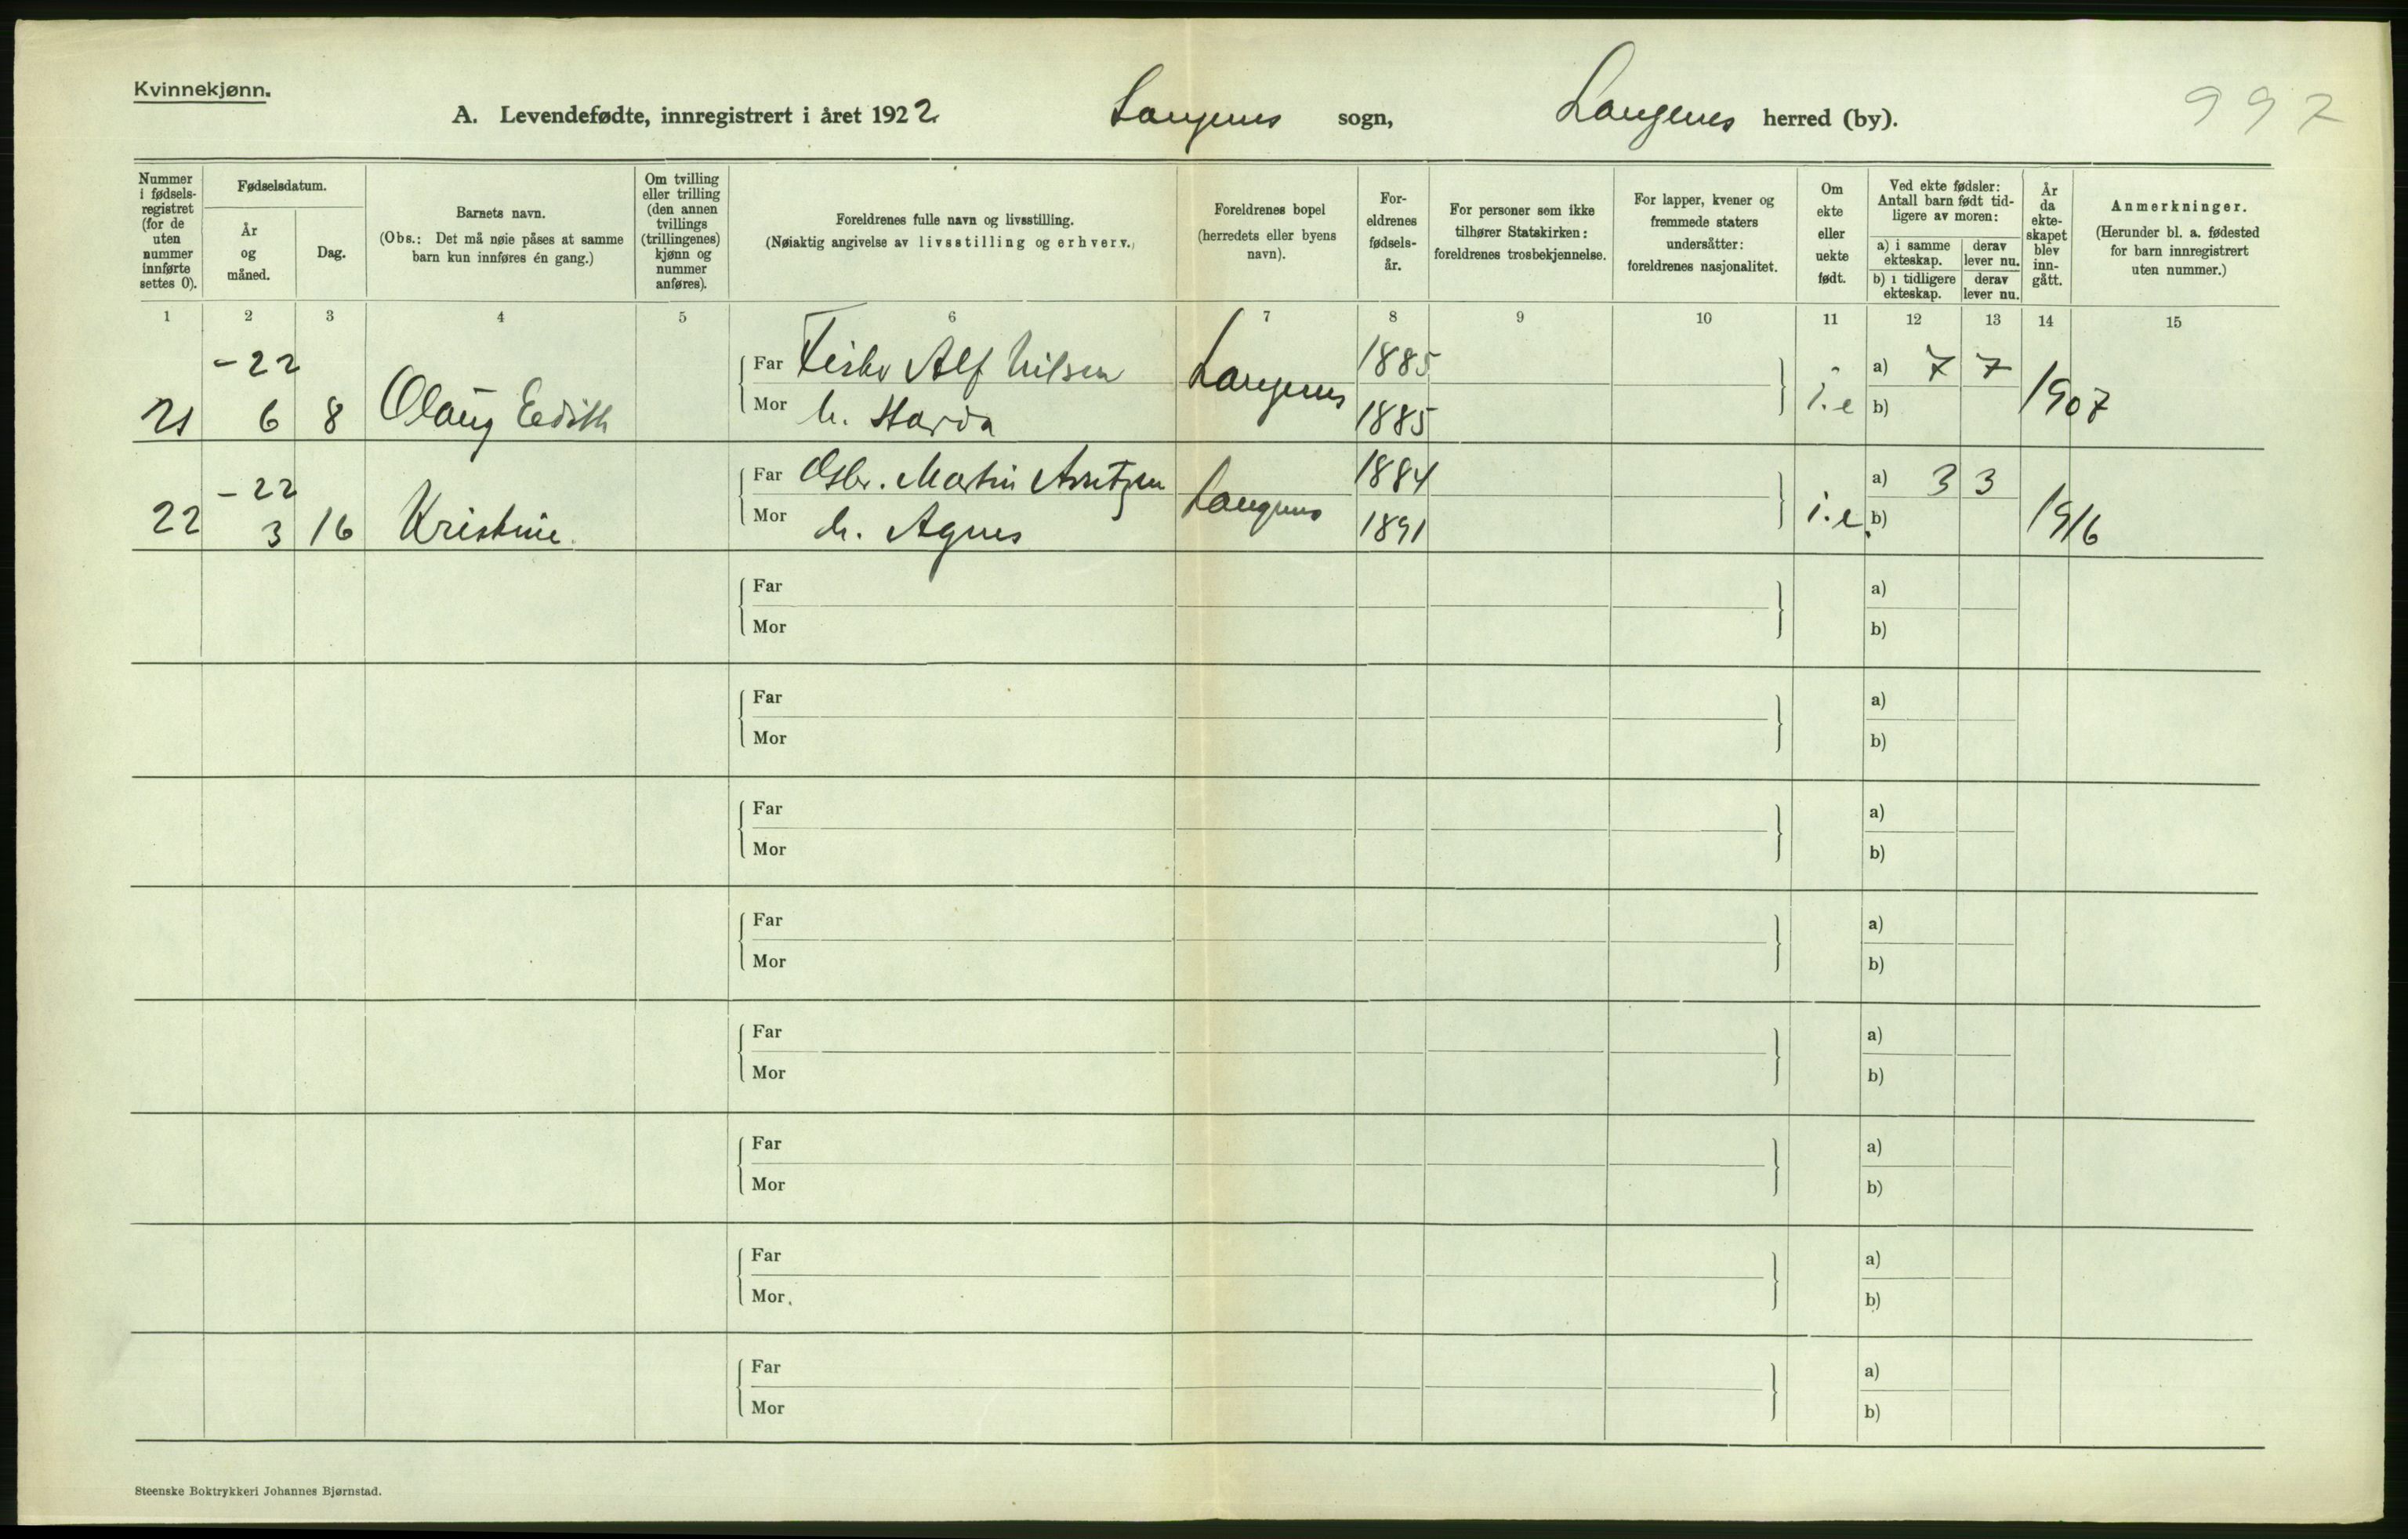 Kvinnekjønn.
A. Levendefødte, innregistrert i året 1922 Langenes sogn, Langenes herred (by). 997
Nummer i fødselsregistret (for de uten nummer innførte settes 0).
Fødselsdatum.
År og måned.
Dag.
Barnets navn.
(Obs.: Det må nøie påses at samme barn kun innføres én gang.)
Om tvilling eller trilling (den annen tvillings (trillingenes) kjønn og nummer anføres).
Foreldrenes fulle navn og livsstilling.
(Nøiaktig angivelse av livsstilling og erhverv.)
Foreldrenes bopel (herredets eller byens navn).
Foreldrenes fødselsår.
For personer som ikke tilhører Statskirken: foreldrenes trosbekjennelse.
For lapper, kvener og fremmede staters undersåtter: foreldrenes nasjonalitet.
Om ekte eller uekte født.
Ved ekte fødsler: Antall barn født tidligere av moren:
a) i samme ekteskap.
derav lever nu.
b) i tidligere ekteskap.
derav lever nu.
År da ekteskapet blev inngått.
Anmerkninger.
(Herunder bl. a. fødested for barn innregistrert uten nummer.)
1 2 3 4 5 6 7 8 9 10 11 12 13 14 15
-22 Far Fisker Alf Nilsen Langenes 1885 a) 7 7
21 6 8 Olaug Edith Mor h. 1885 i.e b) 1907
-22 Far Martin Arntzen Langenes 1884 a) 3 3
22 3 16 Kristine Mor h. Agnes 1891 i.e. b) 1916
Far a)
Mor b)
Far a)
Mor b)
Far a)
Mor b)
Far a)
Mor b)
Far a)
Mor b)
Far a)
Mor b)
Far a)
Mor b)
Far a)
Mor b)
Steenske Boktrykkeri Johannes Bjørnstad.